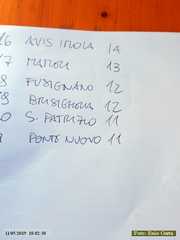 16 AVIS IMOLA 14
17 MATTEI 13
8 FUSIGNANO 12
19 BRISIGHELLA 12
0 S. PATRIZIO 11
PONTE NUOVO 11
11/05/2019 18:02:38
Foto: Enio Costa